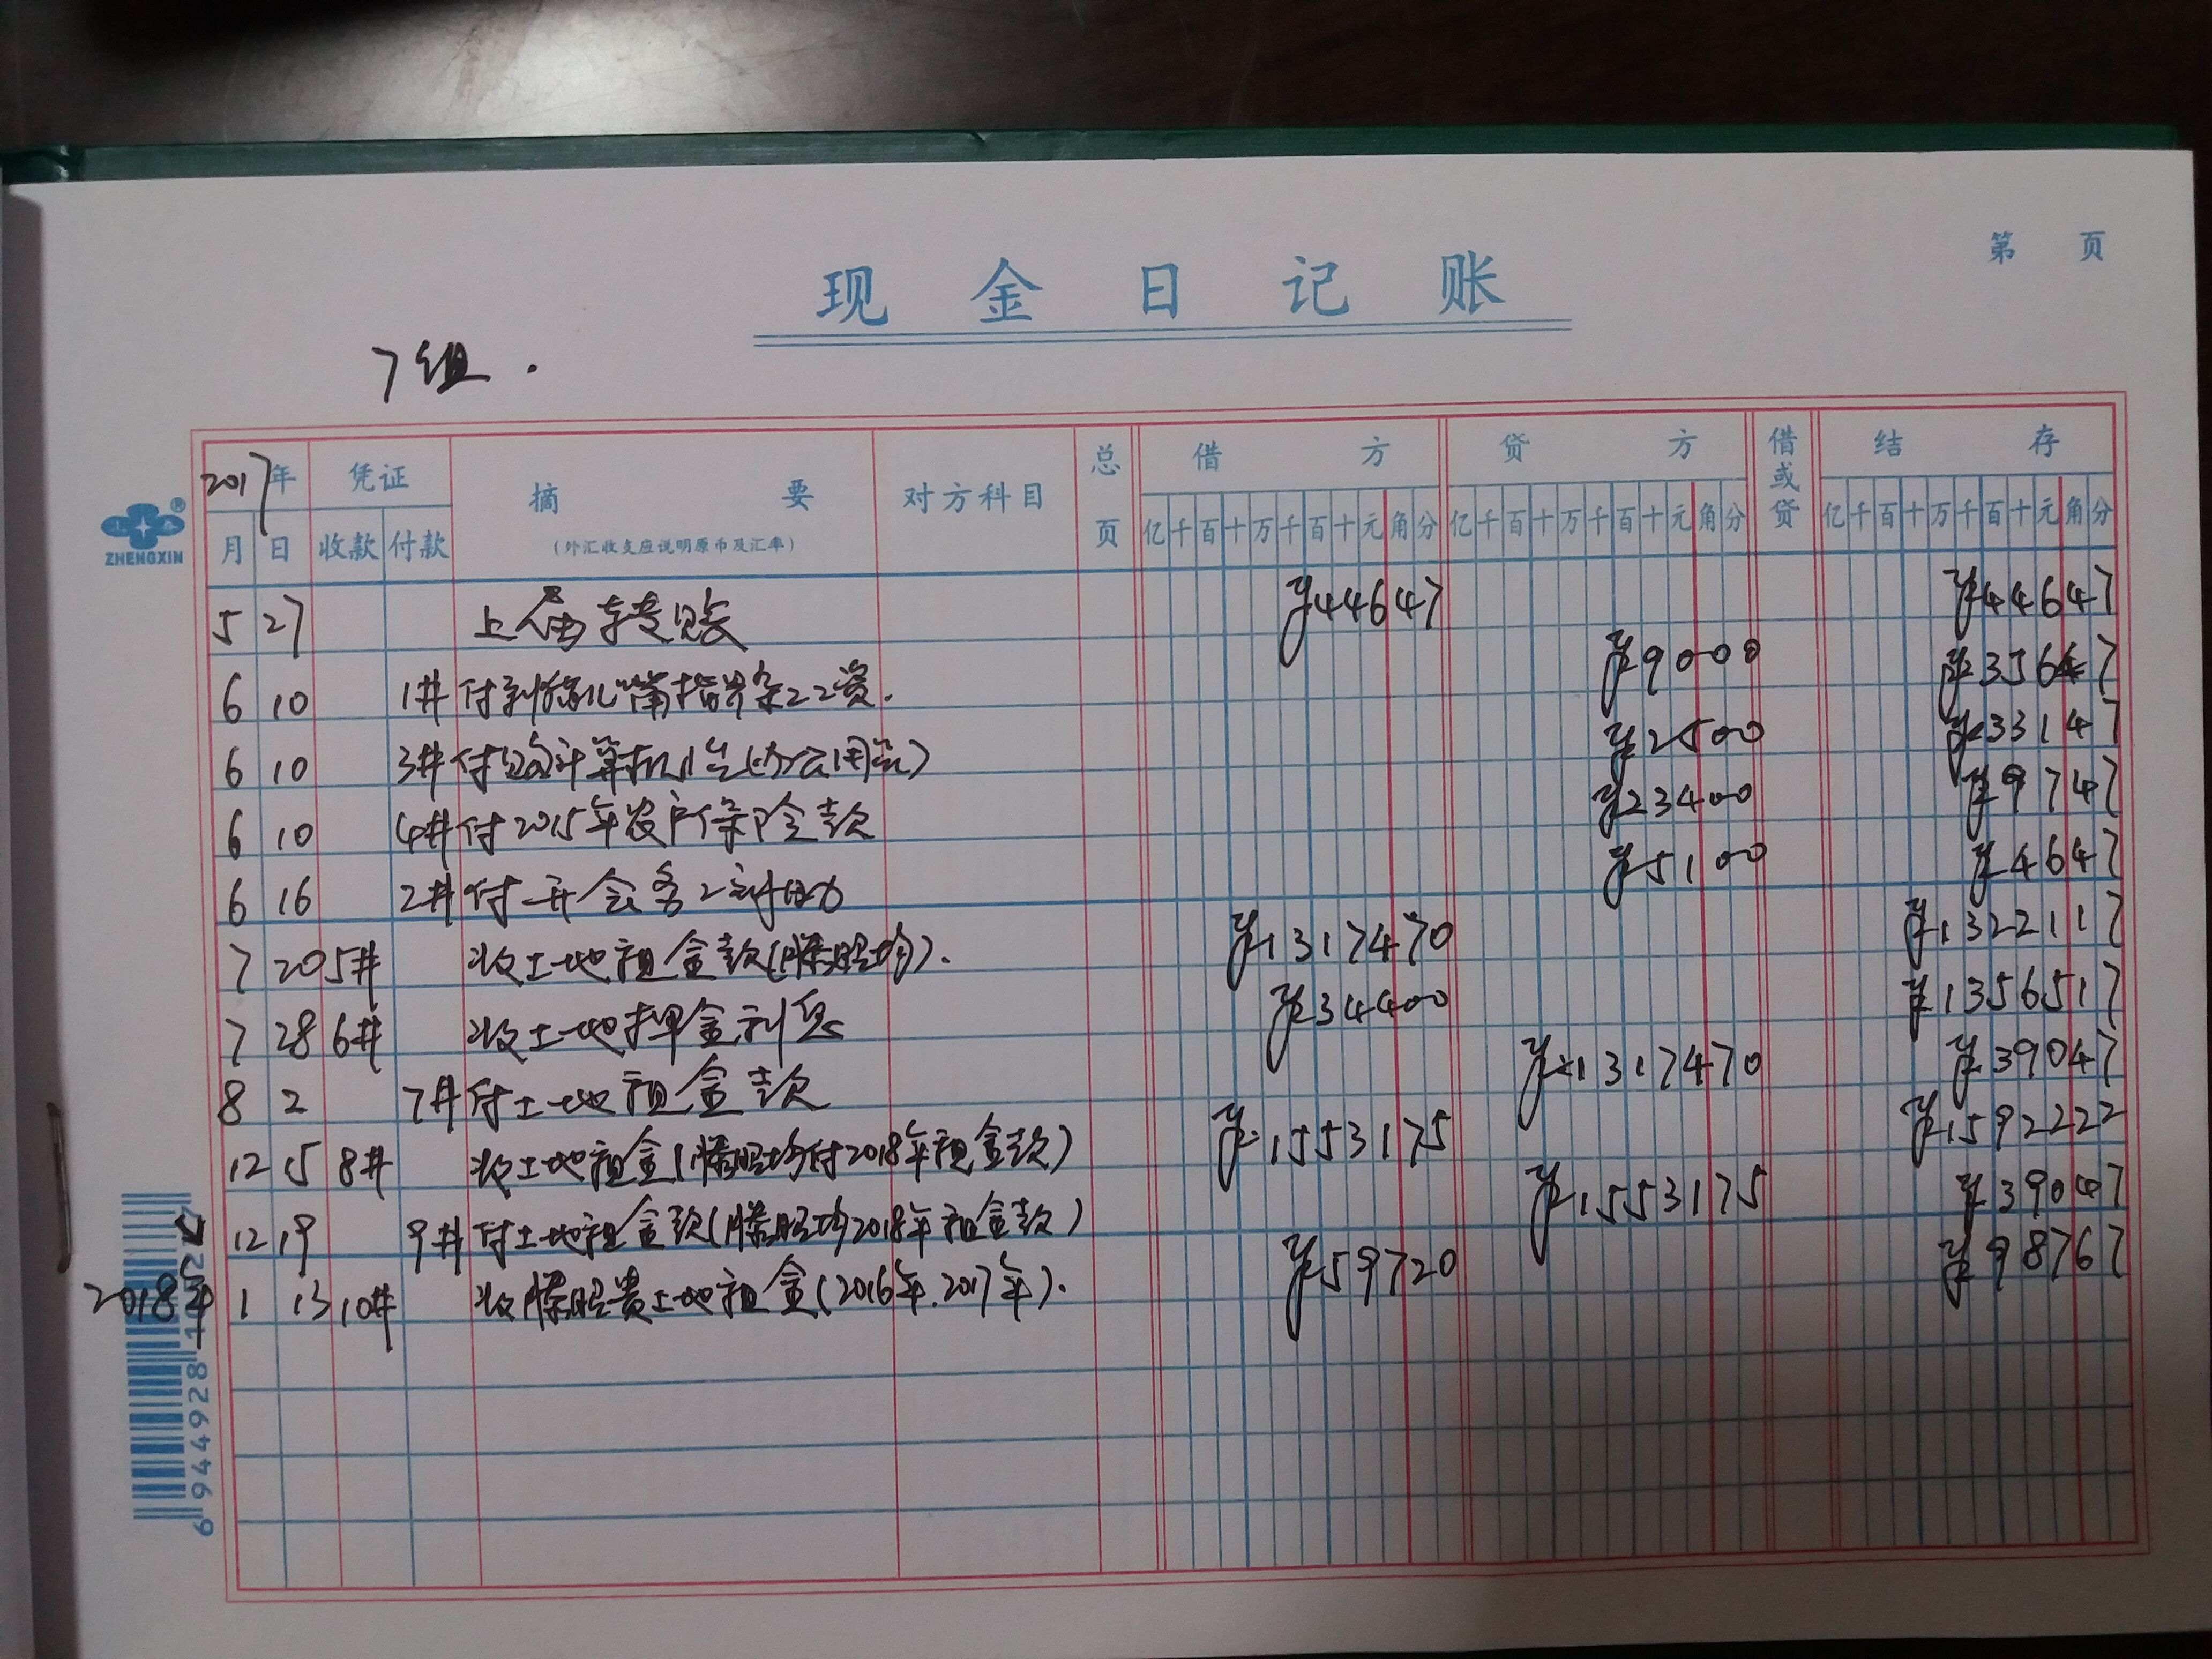 第 页
现金日记账
7组.
2017年 凭证 摘要 对方科目 总页 借方 贷方 借或贷 结存
月 日 收款 付款 (外汇收支应说明原币及汇率) 亿千百十万千百十元角分 亿千百十万千百十元角分 亿千百十万千百十元角分
ZHENGXIN
5 27 上届转账 ¥44647 ¥44647
6 10 1# 付 杂工工资. ¥9000 ¥35647
6 10 3# 付 计算机1台(办公用) ¥2500 ¥33147
6 10 4# 付2015年农户保险款 ¥23400 ¥9747
6 16 2# 付开会务工 ¥5100 ¥4647
7 20 5# 收土地租金款(滕昭均). ¥1317470 ¥1322117
7 28 6# 收土地押金利息 ¥34400 ¥1356517
8 2 7# 付土地租金款 ¥1317470 ¥39047
12 15 8# 收土地租金(滕昭均付2018年租金款) ¥1553175 ¥1592222
12 19 9# 付土地租金款(滕昭均2018年租金款) ¥1553175 ¥39047
2018年 1 13 10# 收滕昭贵土地租金(2016年.2017年). ¥59720 ¥98767